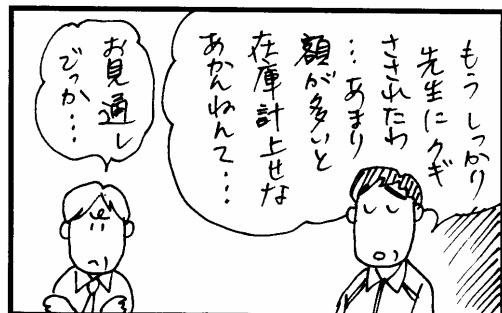 もうしっかり
先生にクギ
さされたわ
…あまり
額が多いと
在庫計上せな
あかんねんて…
お見通し
でっか…